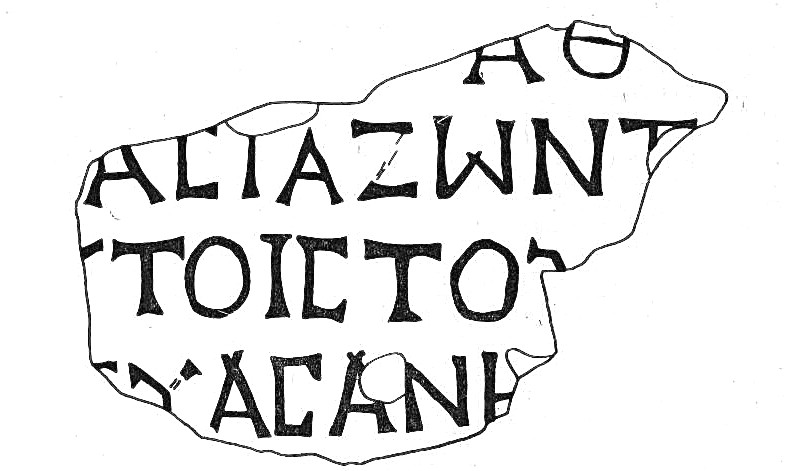 ΑΘ
ΑϹΙΑΖΩΝΤ
ΤΟΙϹΤΟ
ΑϹΑΝΗ